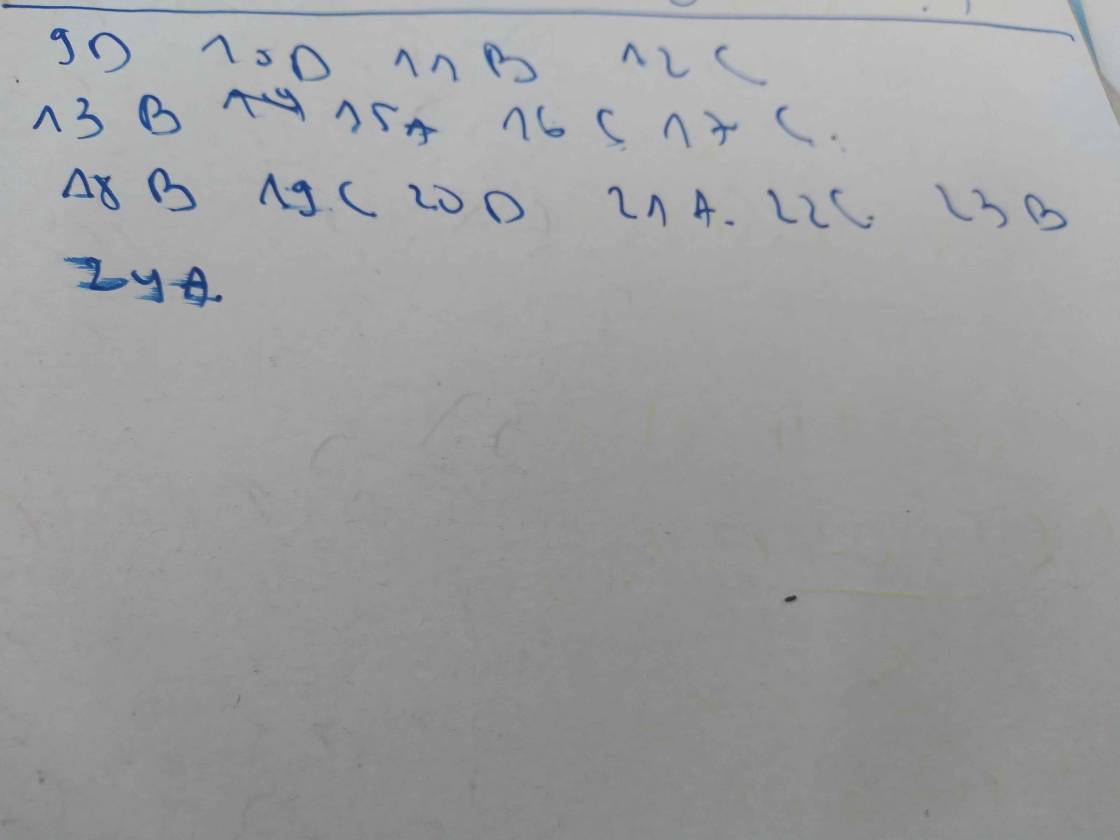 9D 10D 11 B 12 C
13 B 14 15A 16 C 17 C.
18 B 19.C 20 D 21 A. 22C. 23 B
24A.